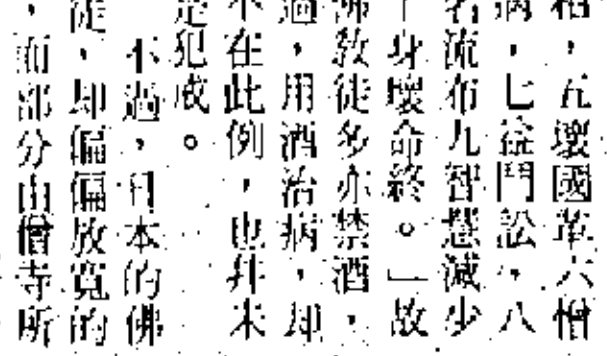 相，五壞國革六憎
病，七益鬥訟，八
名流布九智慧減少
身壞命終。」故
佛教徒多亦禁酒，
過，用酒治病，却
不在此例，也幷未
是犯戒。
不過，日本的佛
徒，却偏偏放寬的
，而部分由僧寺所